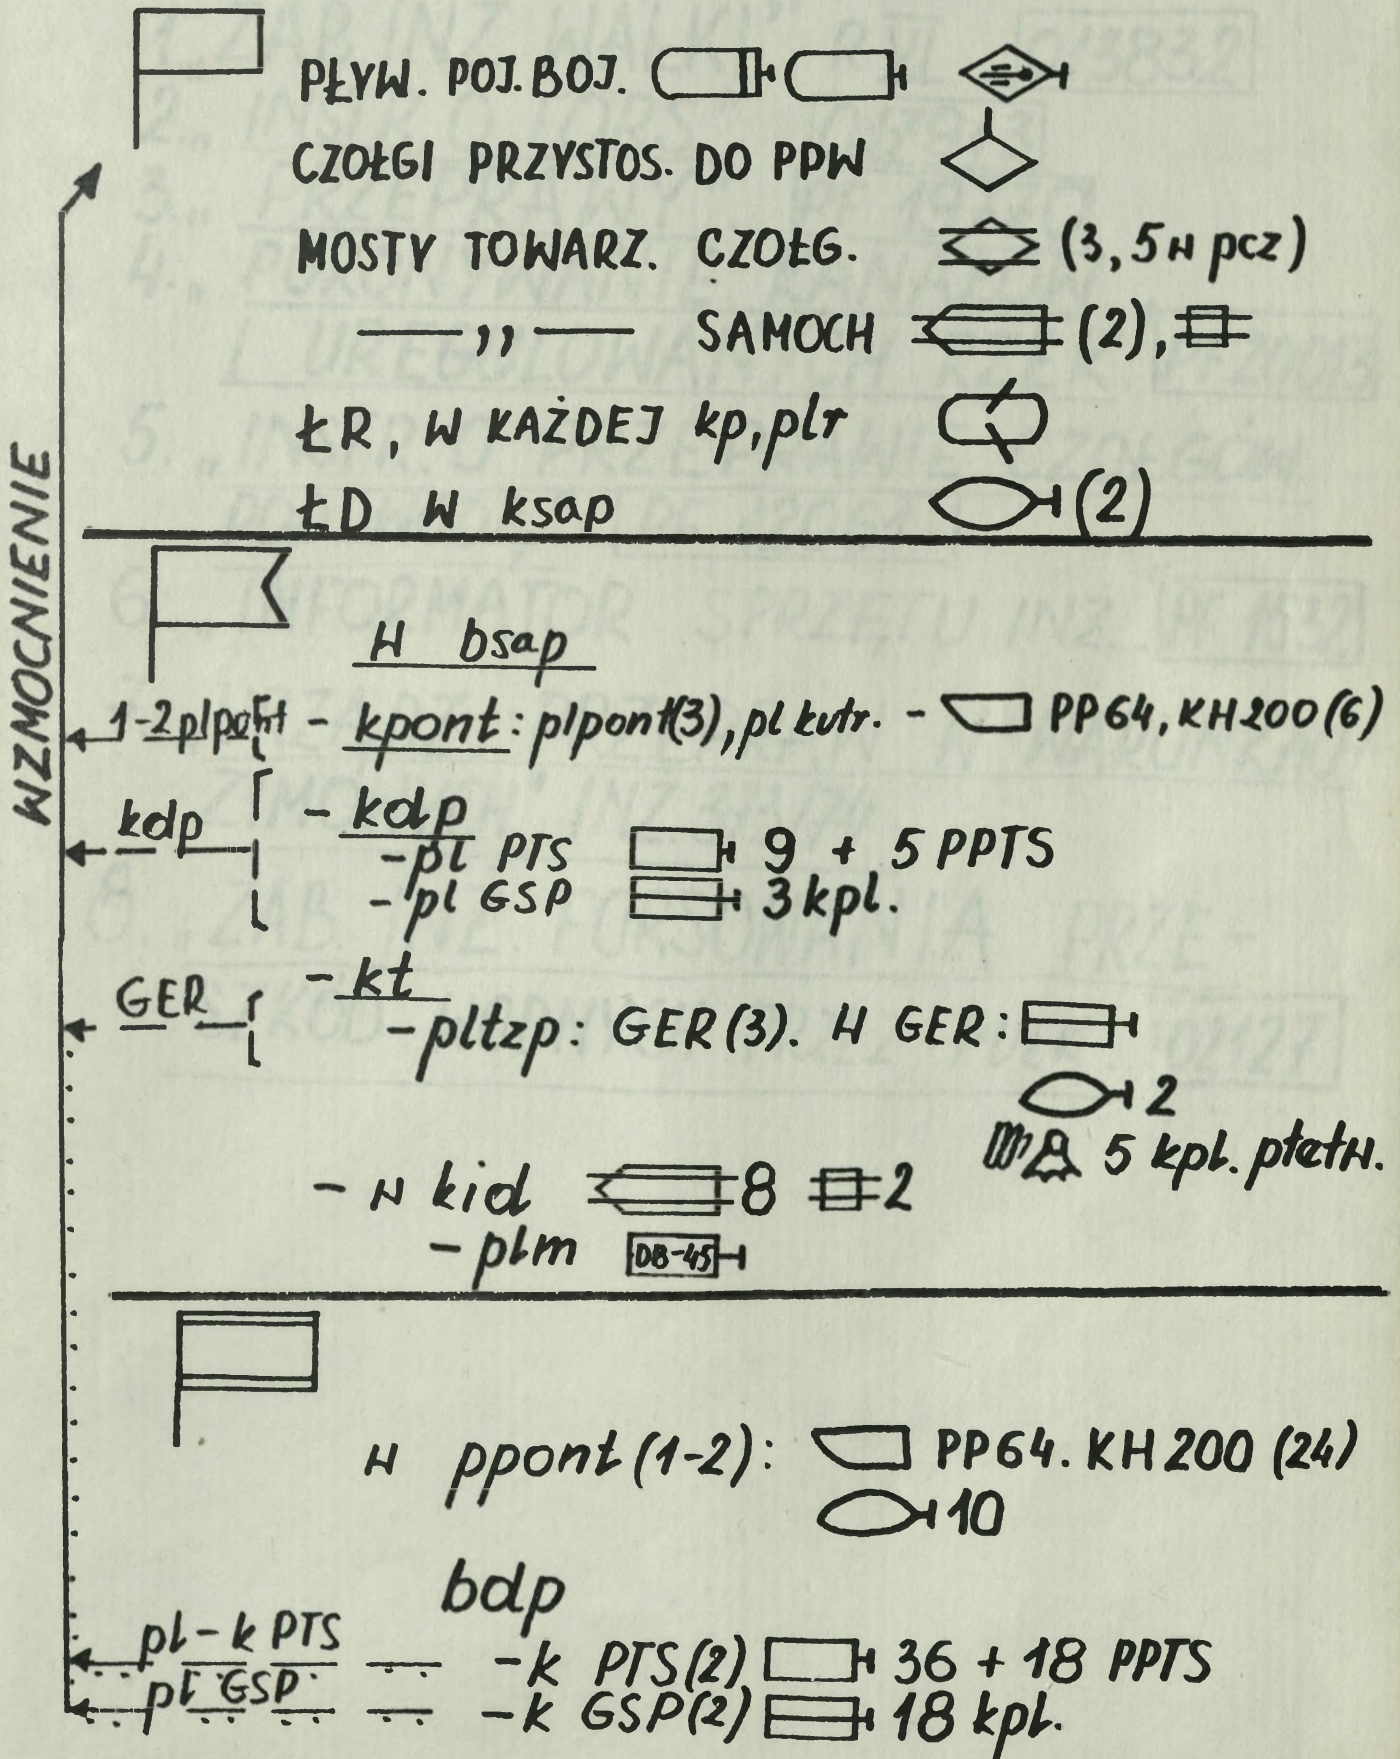 PŁYW. POJ. BOJ.
CZOŁGI PRZYSTOS. DO PPW
MOSTY TOWARZ. CZOŁG. (3, 5 w pcz)
— ,, — SAMOCH (2),
ŁR, W KAŻDEJ kp, plr
ŁD W ksap (2)
WZMOCNIENIE
W bsap
1-2 plpont - kpont: plpont(3), pl kutr. - PP64, KH200(6)
kdp - kdp
- pl PTS 9 + 5 PPTS
- pl GSP 3 kpl.
GER - kt
- pltzp: GER(3). W GER:
2
5 kpl. płetw.
- w kid 8 2
- plm DB-45
W ppont (1-2): PP64. KH200 (24)
10
bdp
pl-k PTS - k PTS(2) 36 + 18 PPTS
pl GSP - k GSP(2) 18 kpl.